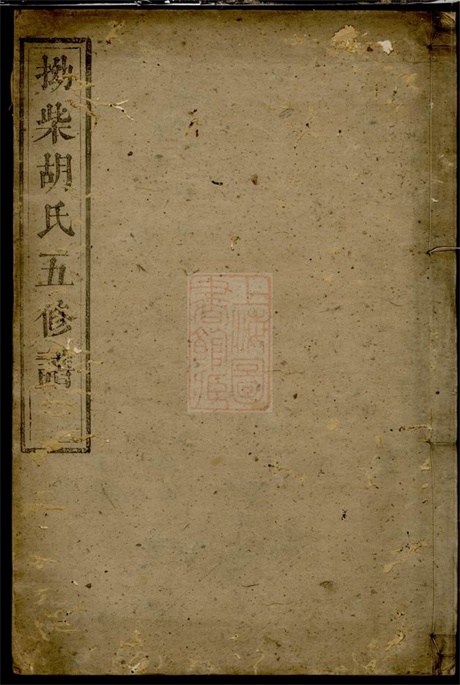 拗柴胡氏五修譜
上海圖
書館藏